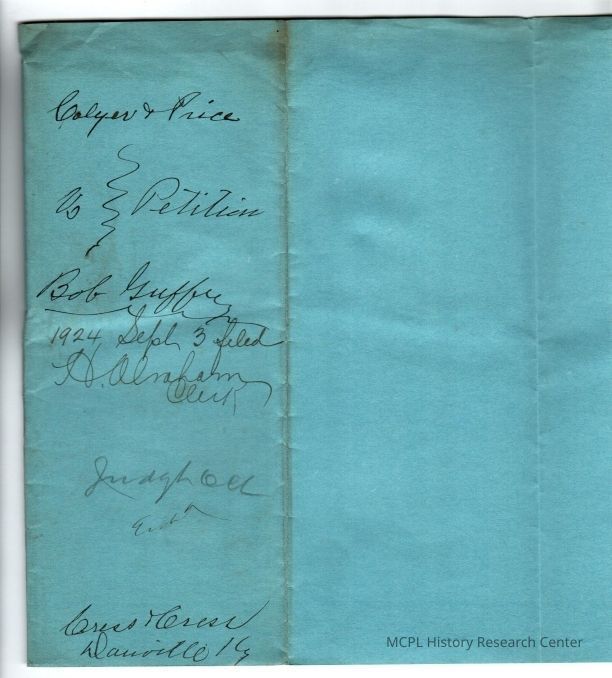 Colyer & Price
Vs } Petition
Bob Guffey
1924 Sept 3 filed
H. Abraham
Clerk
Cress & Cress
Danville Ky
MCPL History Research Center